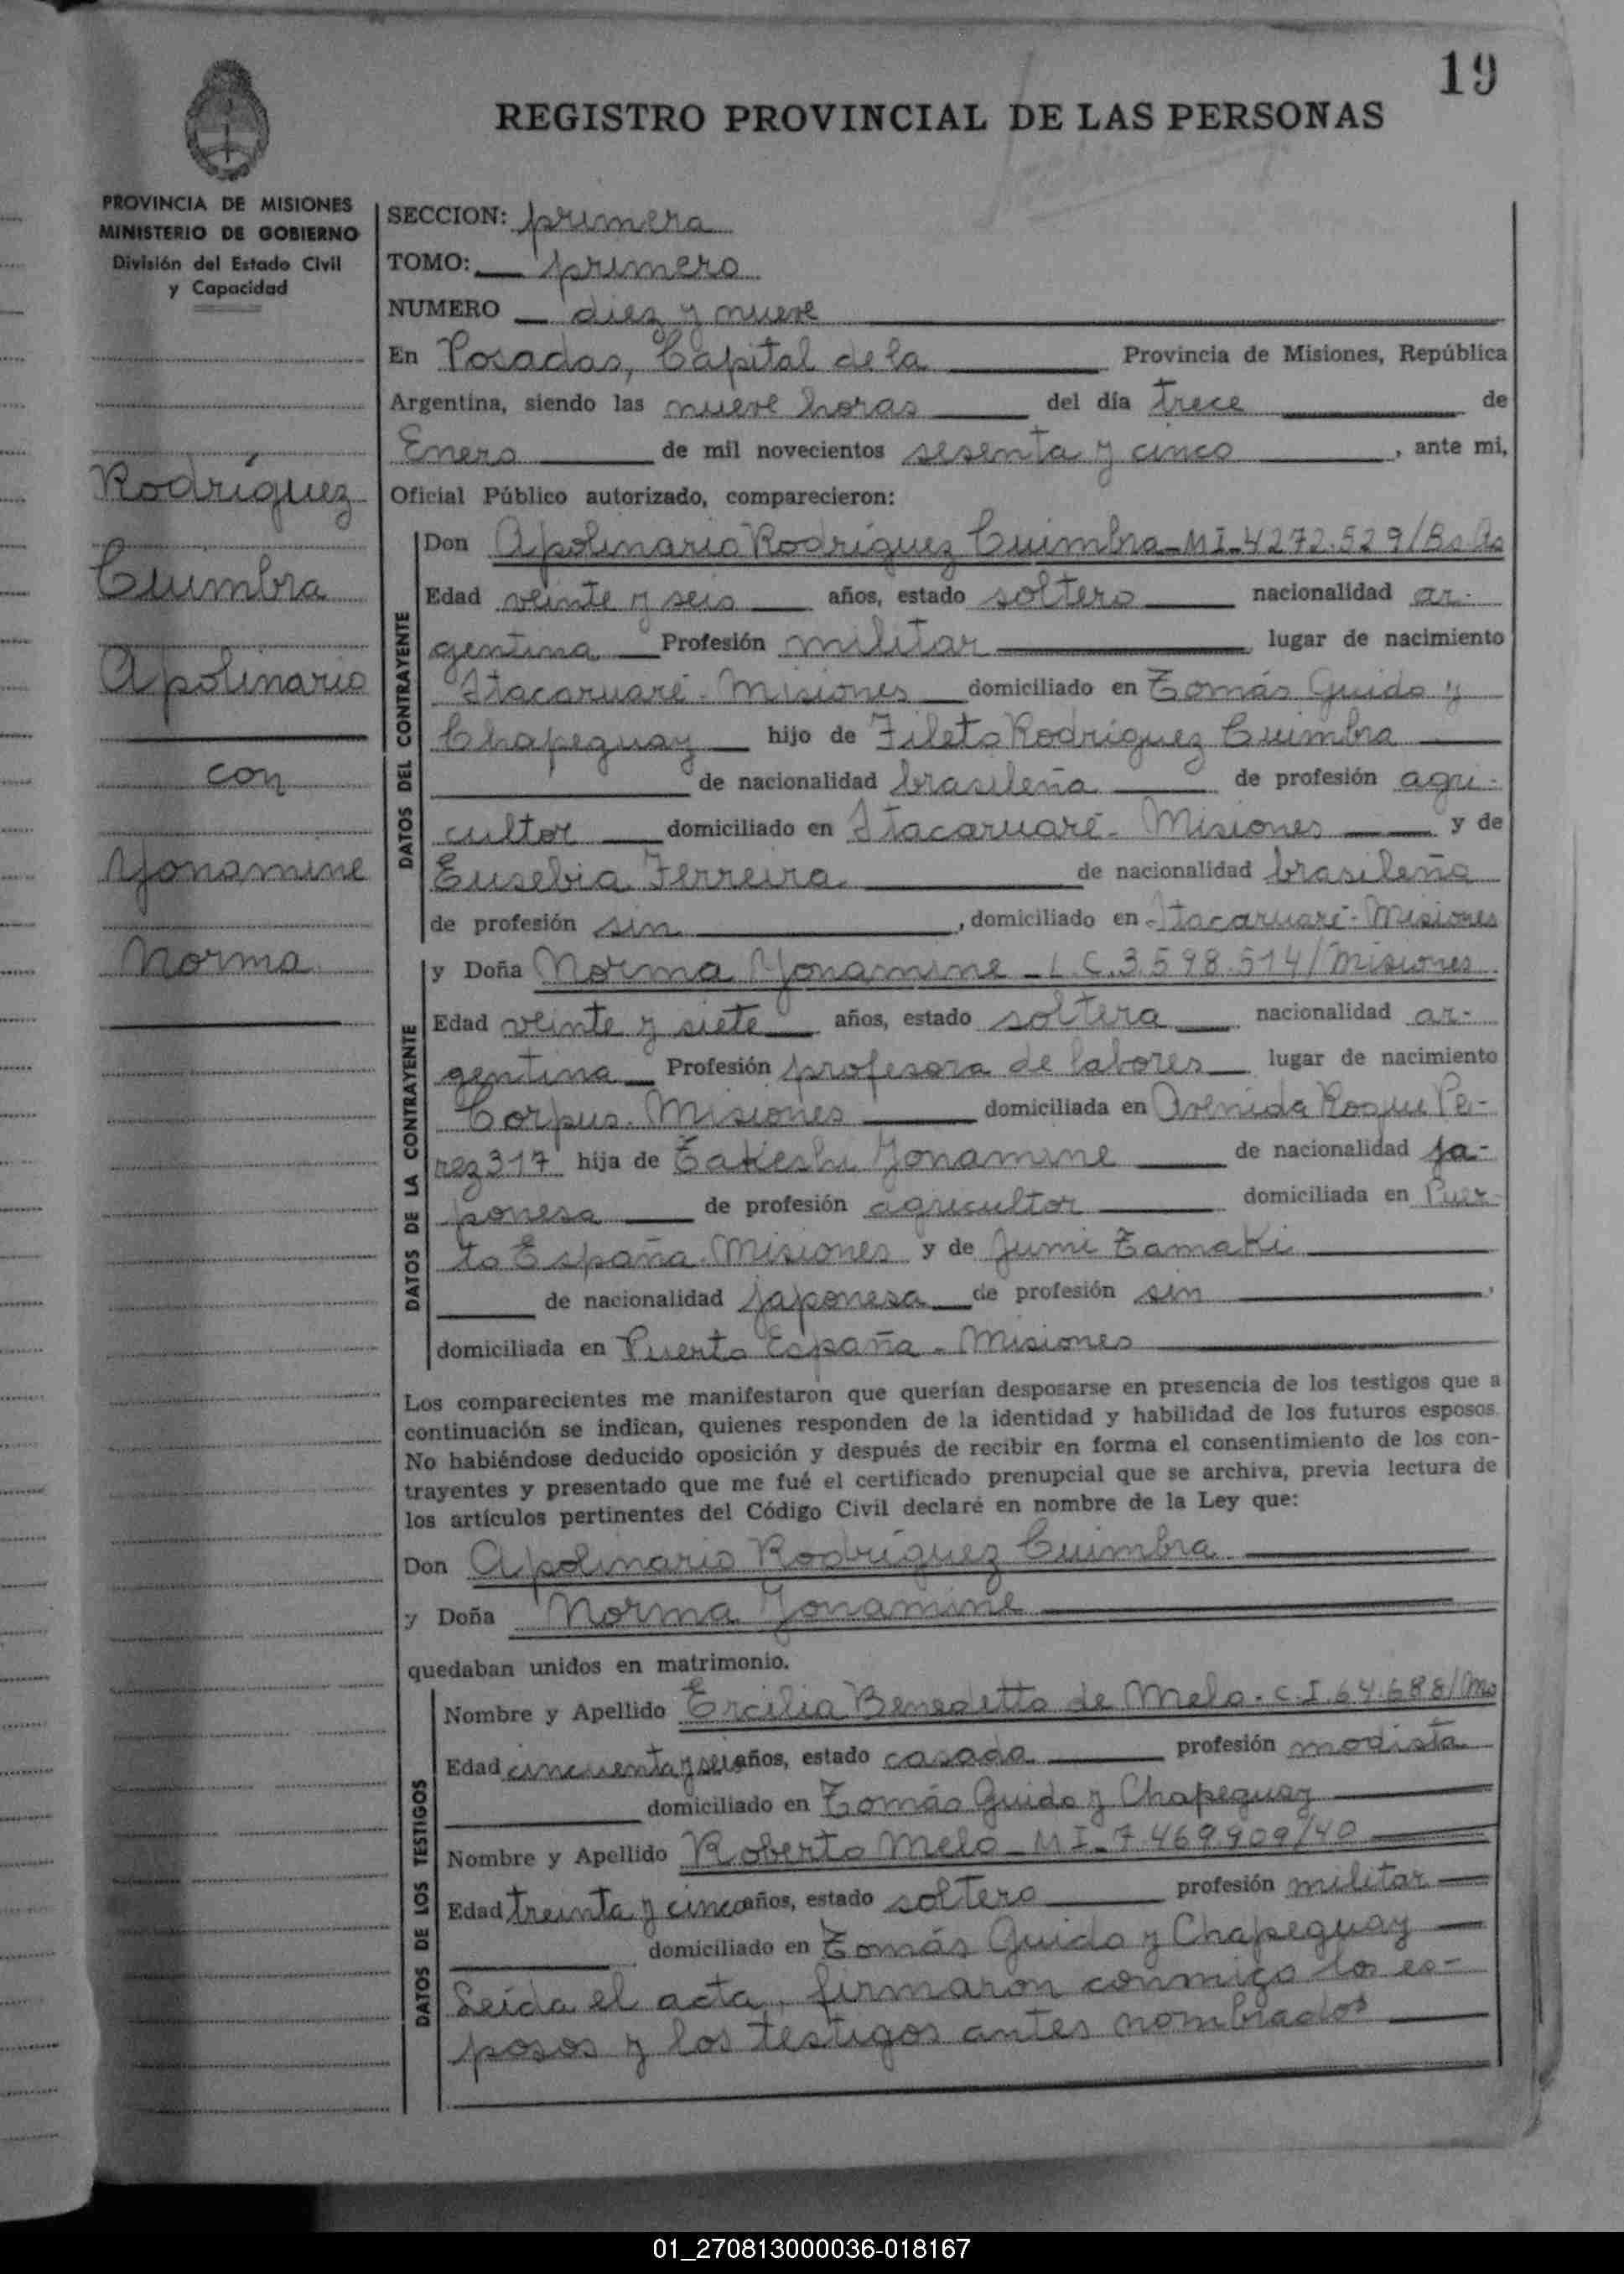 19
REGISTRO PROVINCIAL DE LAS PERSONAS
PROVINCIA DE MISIONES
MINISTERIO DE GOBIERNO
División del Estado Civil
y Capacidad
Rodríguez
Cuimbra
Apolinario
con
Yonamine
Norma
SECCION: primera
TOMO: primero
NUMERO diez y nueve
En Posadas, Capital de la Provincia de Misiones, República
Argentina, siendo las nueve horas del día trece de
Enero de mil novecientos sesenta y cinco, ante mi,
Oficial Público autorizado, comparecieron:
DATOS DEL CONTRAYENTE
Don Apolinario Rodríguez Cuimbra - MI - 4272.529/Bs As
Edad veinte y seis años, estado soltero nacionalidad ar-
gentina Profesión militar lugar de nacimiento
Itacaruaré - Misiones domiciliado en Tomás Guido y
Chapeguay hijo de Fileto Rodríguez Cuimbra
de nacionalidad brasileña de profesión agri-
cultor domiciliado en Itacaruaré - Misiones y de
Eusebia Ferreira de nacionalidad brasileña
de profesión sin, domiciliado en Itacaruaré - Misiones
DATOS DE LA CONTRAYENTE
y Doña Norma Yonamine - L.C. 3.598.514/Misiones
Edad veinte y siete años, estado soltera nacionalidad ar-
gentina Profesión profesora de labores lugar de nacimiento
Corpus - Misiones domiciliada en Avenida Roque Pe-
rez 317 hija de Takeshi Yonamine de nacionalidad ja-
ponesa de profesión agricultor domiciliada en Puer-
to España - Misiones y de Jumi Tamaki
de nacionalidad japonesa de profesión sin,
domiciliada en Puerto España - Misiones
Los comparecientes me manifestaron que querían desposarse en presencia de los testigos que a
continuación se indican, quienes responden de la identidad y habilidad de los futuros esposos.
No habiéndose deducido oposición y después de recibir en forma el consentimiento de los con-
trayentes y presentado que me fué el certificado prenupcial que se archiva, previa lectura de
los artículos pertinentes del Código Civil declaré en nombre de la Ley que:
Don Apolinario Rodríguez Cuimbra
y Doña Norma Yonamine
quedaban unidos en matrimonio.
DATOS DE LOS TESTIGOS
Nombre y Apellido Ercilia Benedetto de Melo - C.I. 64.688/Ms
Edad cincuenta y seis años, estado casada profesión modista
domiciliado en Tomás Guido y Chapeguay
Nombre y Apellido Roberto Melo - MI - 7.469.909/40
Edad treinta y cinco años, estado soltero profesión militar
domiciliado en Tomás Guido y Chapeguay
Leída el acta, firmaron conmigo los es-
posos y los testigos antes nombrados
01_270813000036-018167